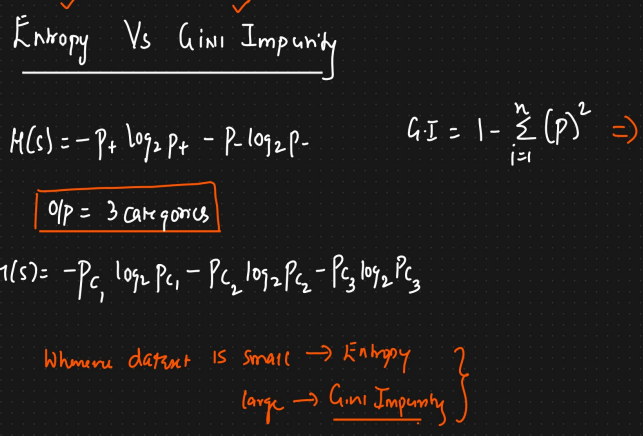 Entropy Vs Gini Impurity
H(s) = -P+ log2 P+ - P- log2 P-
G.I = 1 - n Σ i=1 (P)² ⇒
O/P = 3 categories
H(s) = -Pc1 log2 Pc1 - Pc2 log2 Pc2 - Pc3 log2 Pc3
Whenever dataset is small → Entropy
large → Gini Impurity